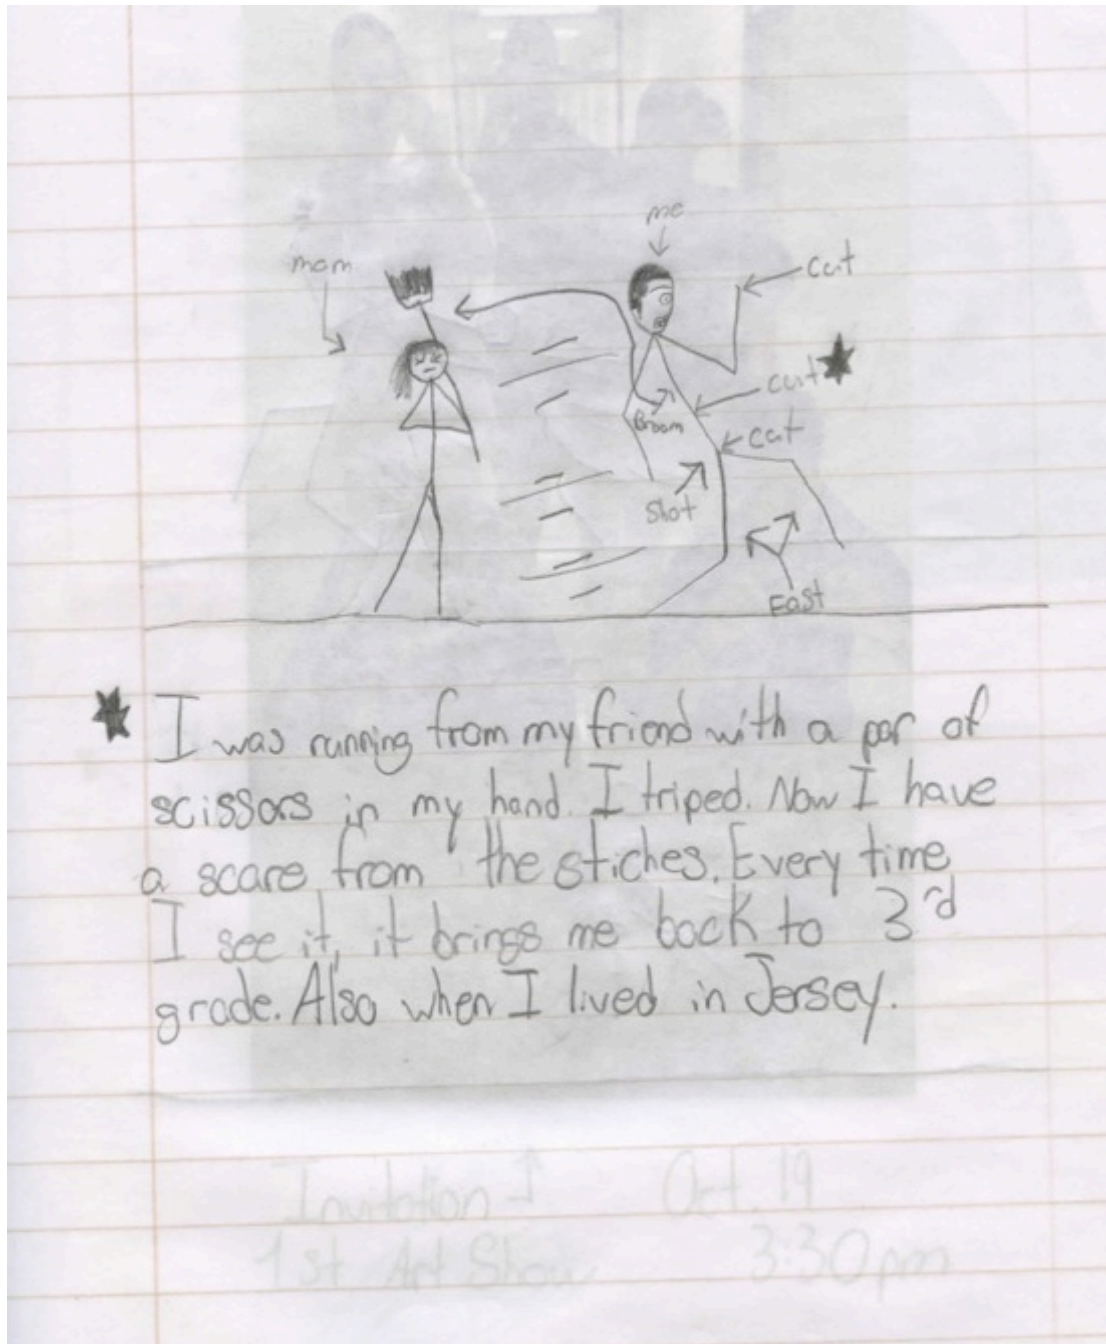 me
mom
cut
cut
Broom
cut
Shot
East
I was running from my friend with a par of
scissors in my hand. I triped. Now I have
a scare from the stiches. Every time
I see it, it brings me back to 3rd
grade. Also when I lived in Jersey.
Invitation Oct. 19
1st Art Show 3:30pm